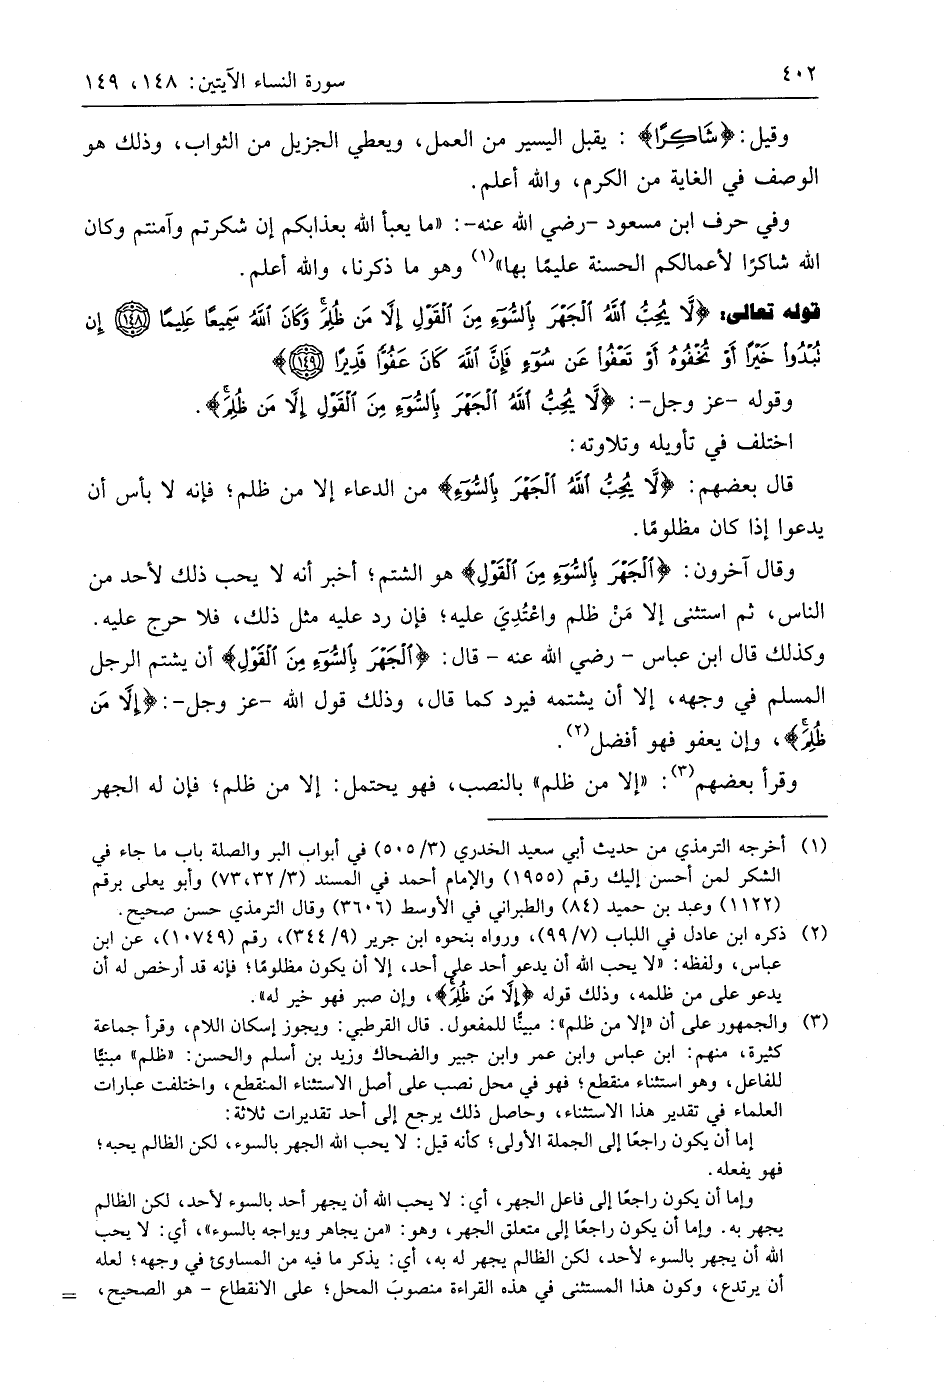 ٤٠٢
سورة النساء الآيتين: ١٤٨، ١٤٩
وقيل: ﴿شَاكِرًا﴾ : يقبل اليسير من العمل، ويعطي الجزيل من الثواب، وذلك هو
الوصف في الغاية من الكرم، والله أعلم.
وفي حرف ابن مسعود –رضي الله عنه–: «ما يعبأ الله بعذابكم إن شكرتم وآمنتم وكان
الله شاكرًا لأعمالكم الحسنة عليمًا بها»(١) وهو ما ذكرنا، والله أعلم.
قوله تعالى: ﴿لَّا يُحِبُّ ٱللَّهُ ٱلۡجَهۡرَ بِٱلسُّوٓءِ مِنَ ٱلۡقَوۡلِ إِلَّا مَن ظُلِمَۚ وَكَانَ ٱللَّهُ سَمِيعًا عَلِيمًا ۝١٤٨ إِن
تُبۡدُواْ خَيۡرًا أَوۡ تُخۡفُوهُ أَوۡ تَعۡفُواْ عَن سُوٓءٖ فَإِنَّ ٱللَّهَ كَانَ عَفُوّٗا قَدِيرًا ۝١٤٩﴾
وقوله –عز وجل–: ﴿لَّا يُحِبُّ ٱللَّهُ ٱلۡجَهۡرَ بِٱلسُّوٓءِ مِنَ ٱلۡقَوۡلِ إِلَّا مَن ظُلِمَۚ﴾.
اختلف في تأويله وتلاوته:
قال بعضهم: ﴿لَّا يُحِبُّ ٱللَّهُ ٱلۡجَهۡرَ بِٱلسُّوٓءِ﴾ من الدعاء إلا من ظلم؛ فإنه لا بأس أن
يدعوا إذا كان مظلومًا.
وقال آخرون: ﴿ٱلۡجَهۡرَ بِٱلسُّوٓءِ مِنَ ٱلۡقَوۡلِ﴾ هو الشتم؛ أخبر أنه لا يحب ذلك لأحد من
الناس، ثم استثنى إلا مَنْ ظلم واعْتُدِيَ عليه؛ فإن رد عليه مثل ذلك، فلا حرج عليه.
وكذلك قال ابن عباس – رضي الله عنه – قال: ﴿ٱلۡجَهۡرَ بِٱلسُّوٓءِ مِنَ ٱلۡقَوۡلِ﴾ أن يشتم الرجل
المسلم في وجهه، إلا أن يشتمه فيرد كما قال، وذلك قول الله –عز وجل–: ﴿إِلَّا مَن
ظُلِمَۚ﴾، وإن يعفو فهو أفضل(٢).
وقرأ بعضهم(٣): «إلا من ظلم» بالنصب، فهو يحتمل: إلا من ظلم؛ فإن له الجهر
(١) أخرجه الترمذي من حديث أبي سعيد الخدري (٣/ ٥٠٥) في أبواب البر والصلة باب ما جاء في
الشكر لمن أحسن إليك رقم (١٩٥٥) والإمام أحمد في المسند (٣/ ٣٢، ٧٣) وأبو يعلى برقم
(١١٢٢) وعبد بن حميد (٨٤) والطبراني في الأوسط (٣٦٠٦) وقال الترمذي حسن صحيح.
(٢) ذكره ابن عادل في اللباب (٧/ ٩٩)، ورواه بنحوه ابن جرير (٩/ ٣٤٤)، رقم (١٠٧٤٩)، عن ابن
عباس، ولفظه: «لا يحب الله أن يدعو أحد على أحد، إلا أن يكون مظلومًا؛ فإنه قد أرخص له أن
يدعو على من ظلمه، وذلك قوله ﴿إِلَّا مَن ظُلِمَۚ﴾، وإن صبر فهو خير له».
(٣) والجمهور على أن «إلا من ظلم»: مبنيًّا للمفعول. قال القرطبي: ويجوز إسكان اللام، وقرأ جماعة
كثيرة، منهم: ابن عباس وابن عمر وابن جبير والضحاك وزيد بن أسلم والحسن: «ظلم» مبنيًّا
للفاعل، وهو استثناء منقطع؛ فهو في محل نصب على أصل الاستثناء المنقطع، واختلفت عبارات
العلماء في تقدير هذا الاستثناء، وحاصل ذلك يرجع إلى أحد تقديرات ثلاثة:
إما أن يكون راجعًا إلى الجملة الأولى؛ كأنه قيل: لا يحب الله الجهر بالسوء، لكن الظالم يحبه؛
فهو يفعله.
وإما أن يكون راجعًا إلى فاعل الجهر، أي: لا يحب الله أن يجهر أحد بالسوء لأحد، لكن الظالم
يجهر به. وإما أن يكون راجعًا إلى متعلق الجهر، وهو: «من يجاهر ويواجه بالسوء»، أي: لا يحب
الله أن يجهر بالسوء لأحد، لكن الظالم يجهر له به، أي: يذكر ما فيه من المساوئ في وجهه؛ لعله
أن يرتدع، وكون هذا المستثنى في هذه القراءة منصوبَ المحل؛ على الانقطاع – هو الصحيح، =